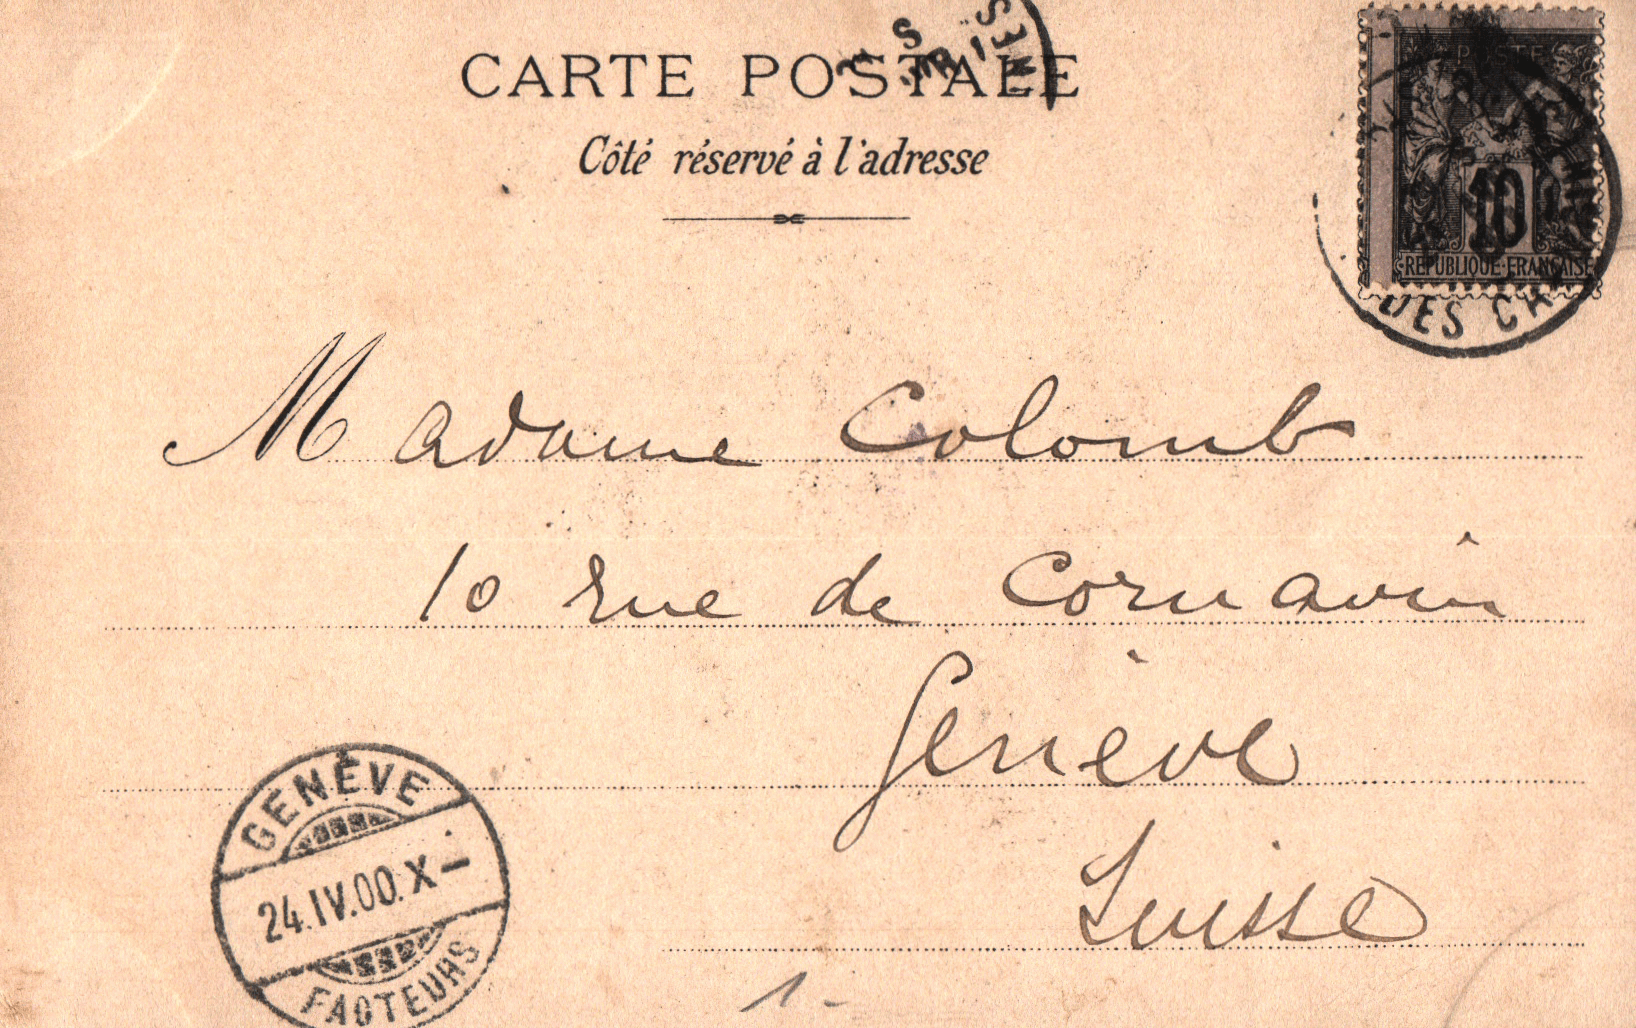 CARTE POSTALE
Côté réservé à l'adresse
POSTE
10
REPUBLIQUE FRANÇAISE
DES
Madame Colomb
10 rue de Cornavin
Genève
Suisse
GENÈVE
24.IV.00.X–
FACTEURS
1.-